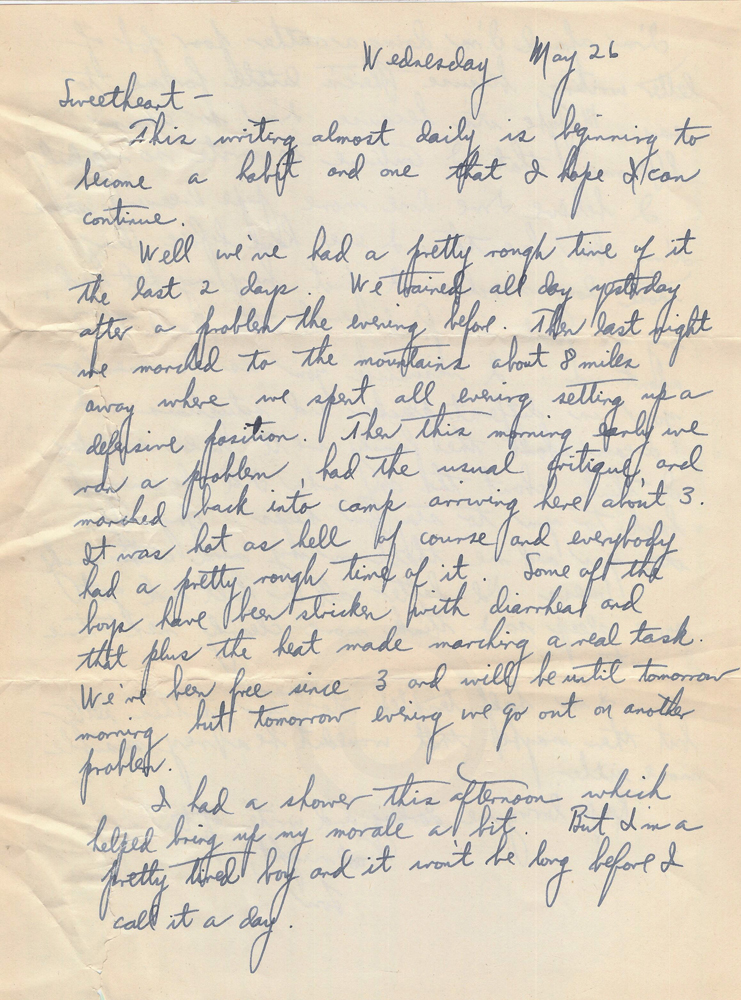 Wednesday May 26
Sweetheart —
This writing almost daily is beginning to
become a habit and one that I hope I can
continue.
Well we've had a pretty rough time of it
the last 2 days. We trained all day yesterday
after a problem the evening before. Then last night
we marched to the mountains about 8 miles
away where we spent all evening setting up a
defensive position. Then this morning early we
ran a problem, had the usual critique, and
marched back into camp arriving here about 3.
It was hot as hell of course and everybody
had a pretty rough time of it. Some of the
boys have been stricken with diarrhea and
that plus the heat made marching a real task.
We've been free since 3 and will be until tomorrow
morning but tomorrow evening we go out on another
problem.
I had a shower this afternoon which
helped bring up my morale a bit. But I'm a
pretty tired boy and it won't be long before I
call it a day.